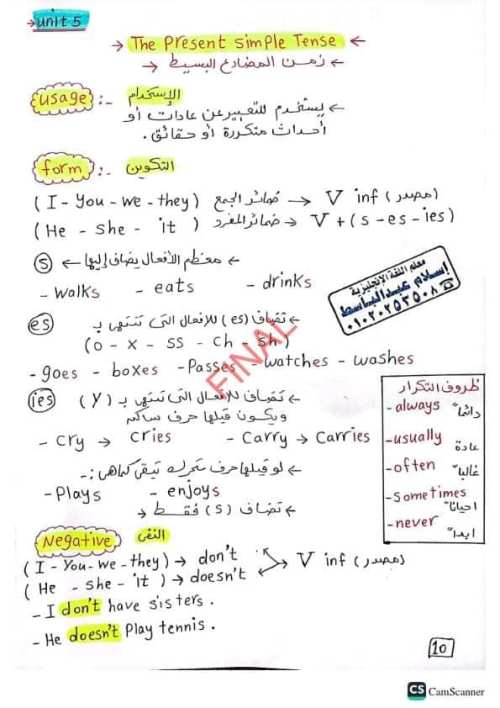 → unit 5
→ The Present Simple Tense ←
← زمن المضارع البسيط →
usage :- الإستخدام
← يستخدم للتعبير عن عادات أو
أحداث متكررة أو حقائق.
form :- التكوين
(I - You - we - they) ضمائر الجمع → V inf (مصدر)
(He - she - it) ضمائر المفرد → V + (s - es - ies)
(s) ← معظم الأفعال يضاف إليها ←
- walks - eats - drinks
معلم اللغة الإنجليزية
إسلام عبدالباسط
٠١٠٢٠٢٥٣٥٠٨
(es) ← تضاف (es) للإفعال التى تنتهى بـ
(o - x - ss - ch - sh)
- goes - boxes - Passes - watches - washes
FINAL
(ies) ← تضاف للإفعال التى تنتهى بـ (y)
ويكون قبلها حرف ساكن
- cry → cries - carry → carries
← لو قبلها حرف متحرك تبقى كماهى :-
- Plays - enjoys
← تضاف (s) فقط →
ظروف التكرار
- always دائماً
- usually عادة
- often غالباً
- sometimes احياناً
- never ابداً
Negative النفى
(I - You - we - they) → don't
(He - she - it) → doesn't → V inf (مصدر)
- I don't have sisters.
- He doesn't Play tennis.
10
CS CamScanner